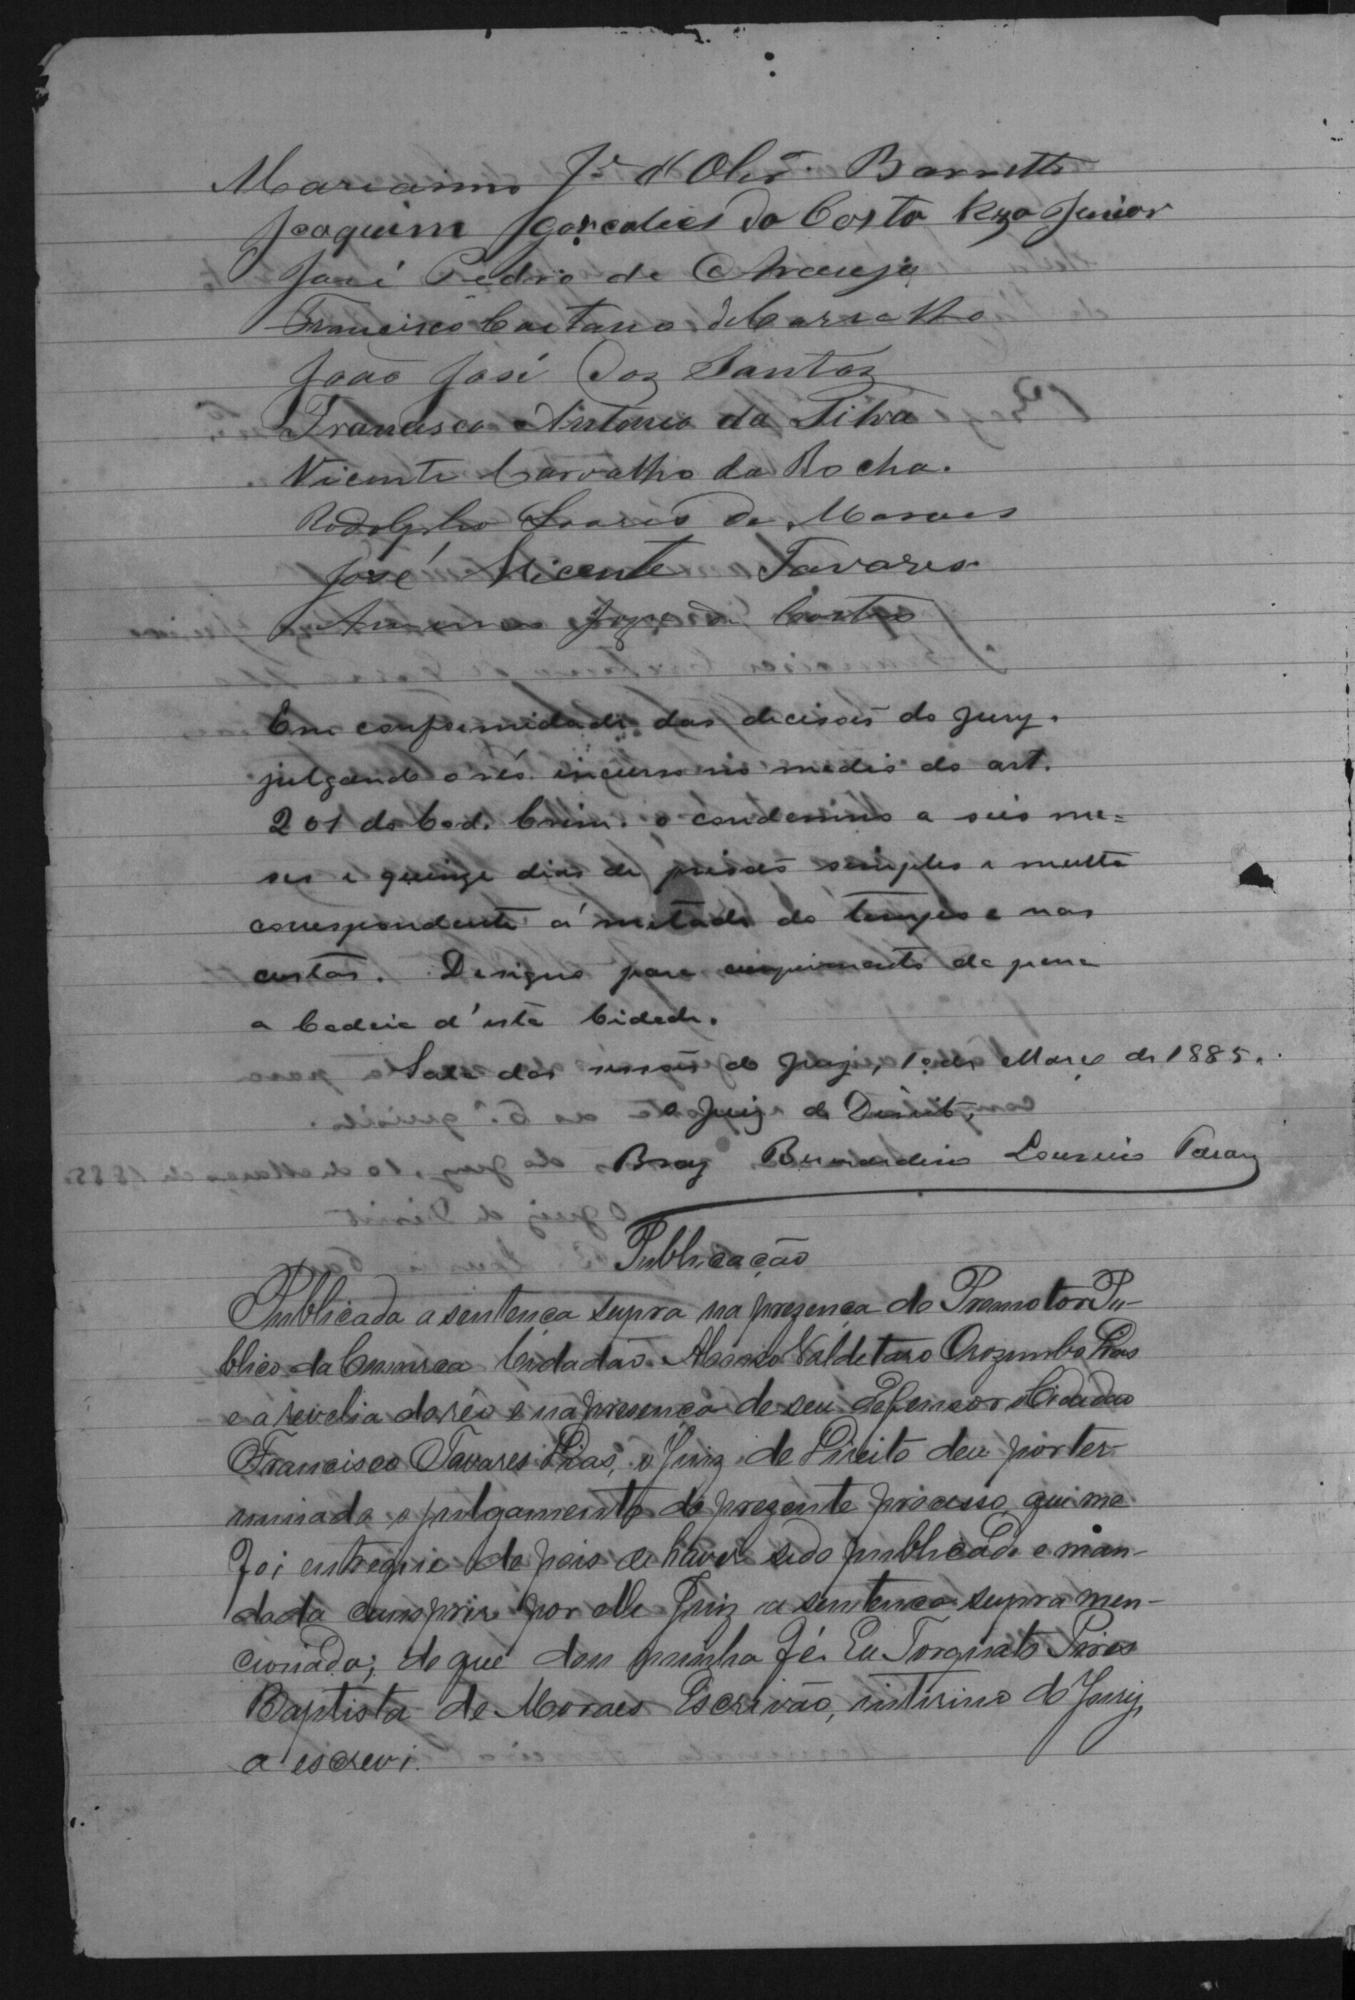 Marianno Je. d'Olivr.ª Barretto
Joaquim Gonçalves da Costa Rzo Junior
José Pedro de Araujo
Francisco Caetano de Carvalho
João José dos Santos
Francisco Antonio da Silva
Vicente Carvalho da Rocha.
Rodolpho Soares de Moraes
José Vicente Tavares
José da Costa
Em conformidade das decisões do Jury.
julgando o réo incurso no medio do art.
201 do Cod. Crim. o condemno a seis me=
ses e quinze dias de prisão simples e multa
correspondente á metade do tempo e nas
custas. Designo para cumprimento da pena
a Cadeia d'esta Cidade.
Sala das sessões do Jury, 10 de Março de 1885.
o Juiz de Direito,
Braz Bernardino Loureiro Tavares
Publicação
Publicada a sentença supra na prezença do Promotor Pu-
blico da Comarca Cidadão Valdetaro Orozimbo Dias
e a revelia do réo e na presença de seu defensor o Cidadão
Francisco Tavares Dias, o Juiz de Direito deu por ter-
minado o julgamento do prezente processo, que me
foi entregue depois de haver sido publicado e man-
dada cumprir por elle Juiz a sentença supra men-
cionada; do que dou minha fé. Eu Torquato Pires
Baptista de Moraes Escrivão, interino do Jury,
a escrevi.